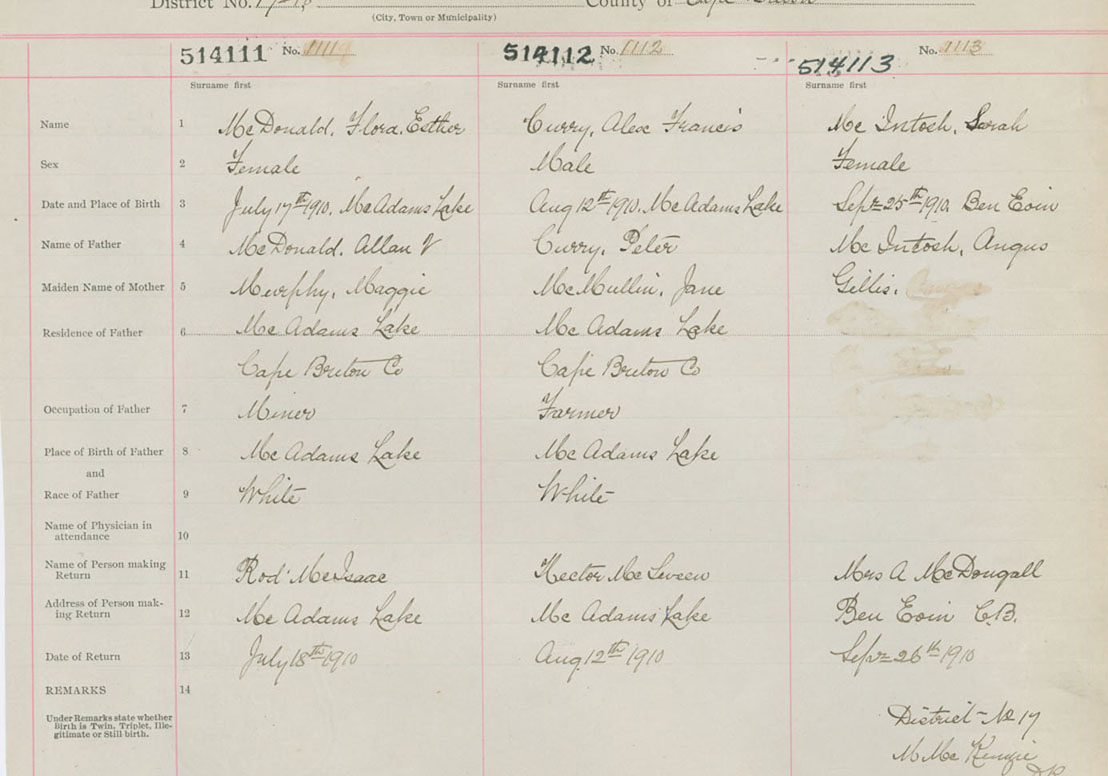 District No. County of Cape Breton
(City, Town or Municipality)
514111 No. 1111 514112 No. 1112 514113 No. 1113
Surname first Surname first Surname first
Name 1 McDonald, Flora Esther Curry, Alex Francis Mc Intosh, Sarah
Sex 2 Female Male Female
Date and Place of Birth 3 July 17th 1910, McAdams Lake Aug 12th 1910, McAdams Lake Sept 25th 1910, Ben Eoin
Name of Father 4 McDonald, Allan Curry, Peter Mc Intosh, Angus
Maiden Name of Mother 5 Murphy, Maggie McMullin, Jane Gillis,
Residence of Father 6 Mc Adams Lake Mc Adams Lake
Cape Breton Co Cape Breton Co
Occupation of Father 7 Miner Farmer
Place of Birth of Father 8 Mc Adams Lake Mc Adams Lake
and
Race of Father 9 White White
Name of Physician in
attendance 10
Name of Person making
Return 11 Rod McIsaac Hector Mc Mrs A McDougall
Address of Person mak-
ing Return 12 Mc Adams Lake Mc Adams Lake Ben Eoin C.B.
Date of Return 13 July 18th 1910 Aug 12th 1910 Sept 26th 1910
REMARKS 14
Under Remarks state whether
Birth is Twin, Triplet, Ille-
gitimate or Still birth.
District No 17
M McKenzie